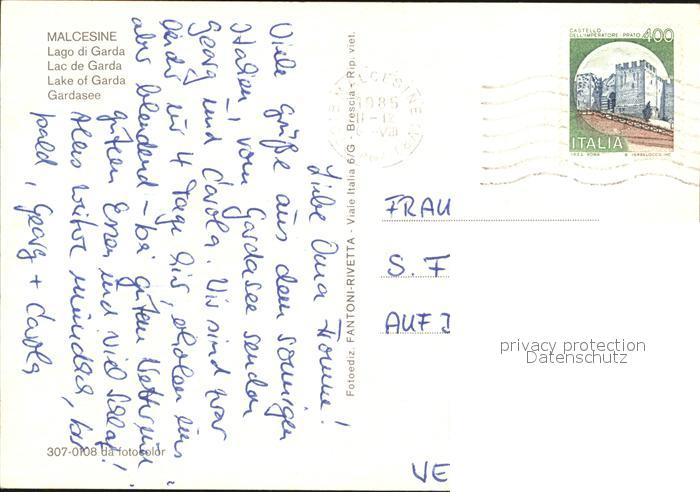 MALCESINE
Lago di Garda
Lac de Garda
Lake of Garda
Gardasee
Liebe Oma
Viele Grüße aus dem sonnigen
Italien, vom Gardasee senden
Georg und Carola. Wir sind zwar
leider nur 4 Tage hier, erholen uns
aber blendend - bei gutem Wetter und
gutem Essen und viel Schlaf!
Alles weitere mündlich, bis
bald, Georg + Carola
307-0108 da fotocolor
Fotoediz. FANTONI-RIVETTA - Viale Italia 6/G - Brescia - Rip. viet.
MALCESINE
1985
CASTELLO
DELL'IMPERATORE · PRATO
400
ITALIA
FRAU
S. F
AUF
VE
privacy protection
Datenschutz